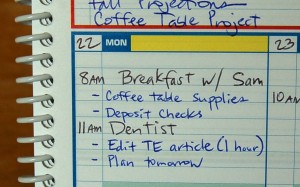 Fall Projections
Coffee Table Project
22 MON 23
8AM Breakfast w/ Sam
- Coffee table supplies
10A
- Deposit Checks
11AM Dentist
- Edit TE article (1 hour)
- Plan tomorrow